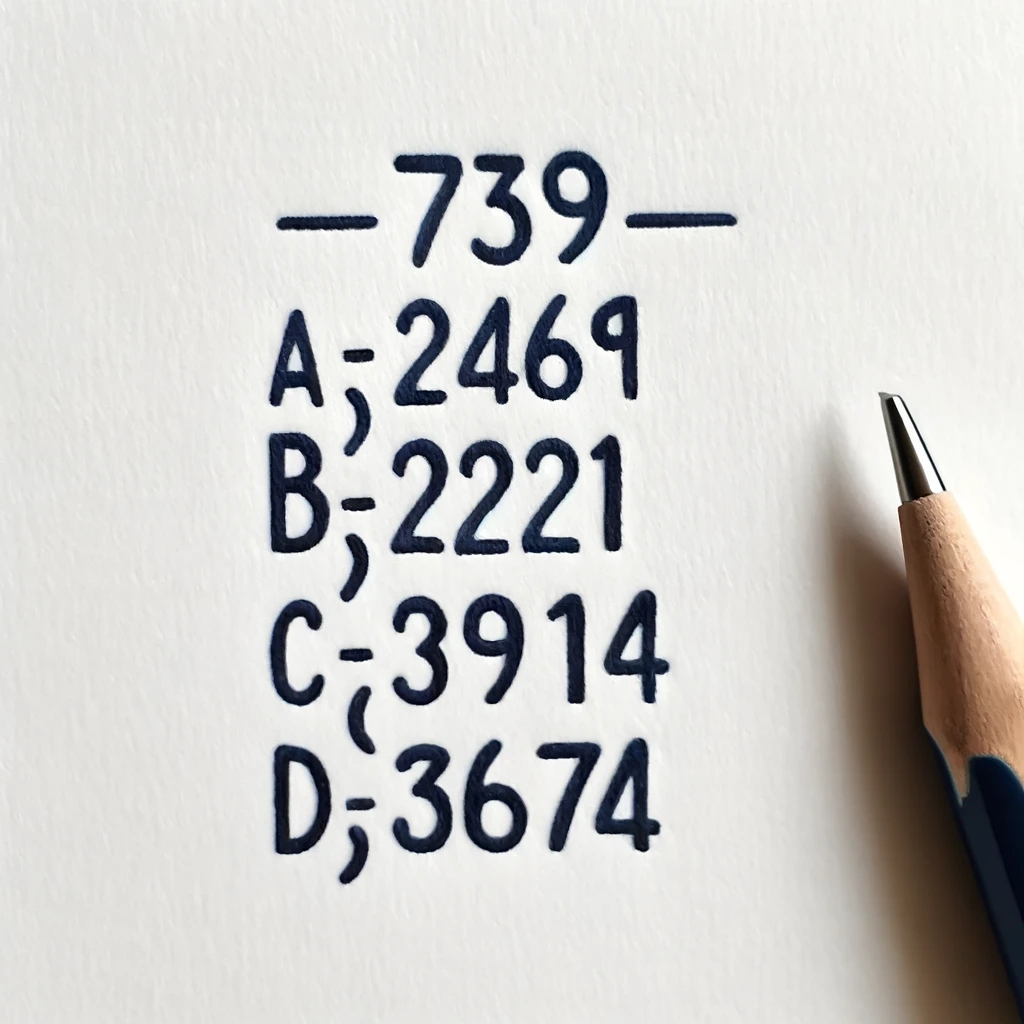 —739—
A;-2469
B;-2221
C;-3914
D;-3674